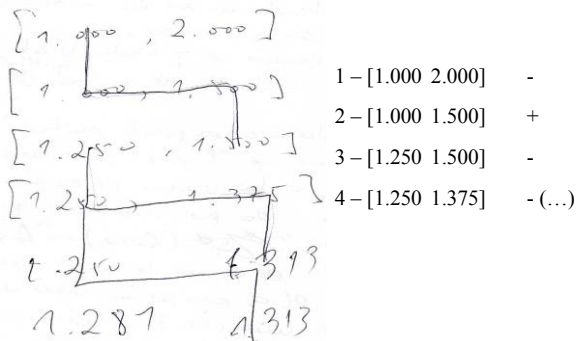 [1.000 , 2.000]
[1.000, 1.500]
[1.250 , 1.500]
[1.250, 1.375]
1.250 1.313
1.281 1.313
1 – [1.000 2.000] -
2 – [1.000 1.500] +
3 – [1.250 1.500] -
4 – [1.250 1.375] - (…)